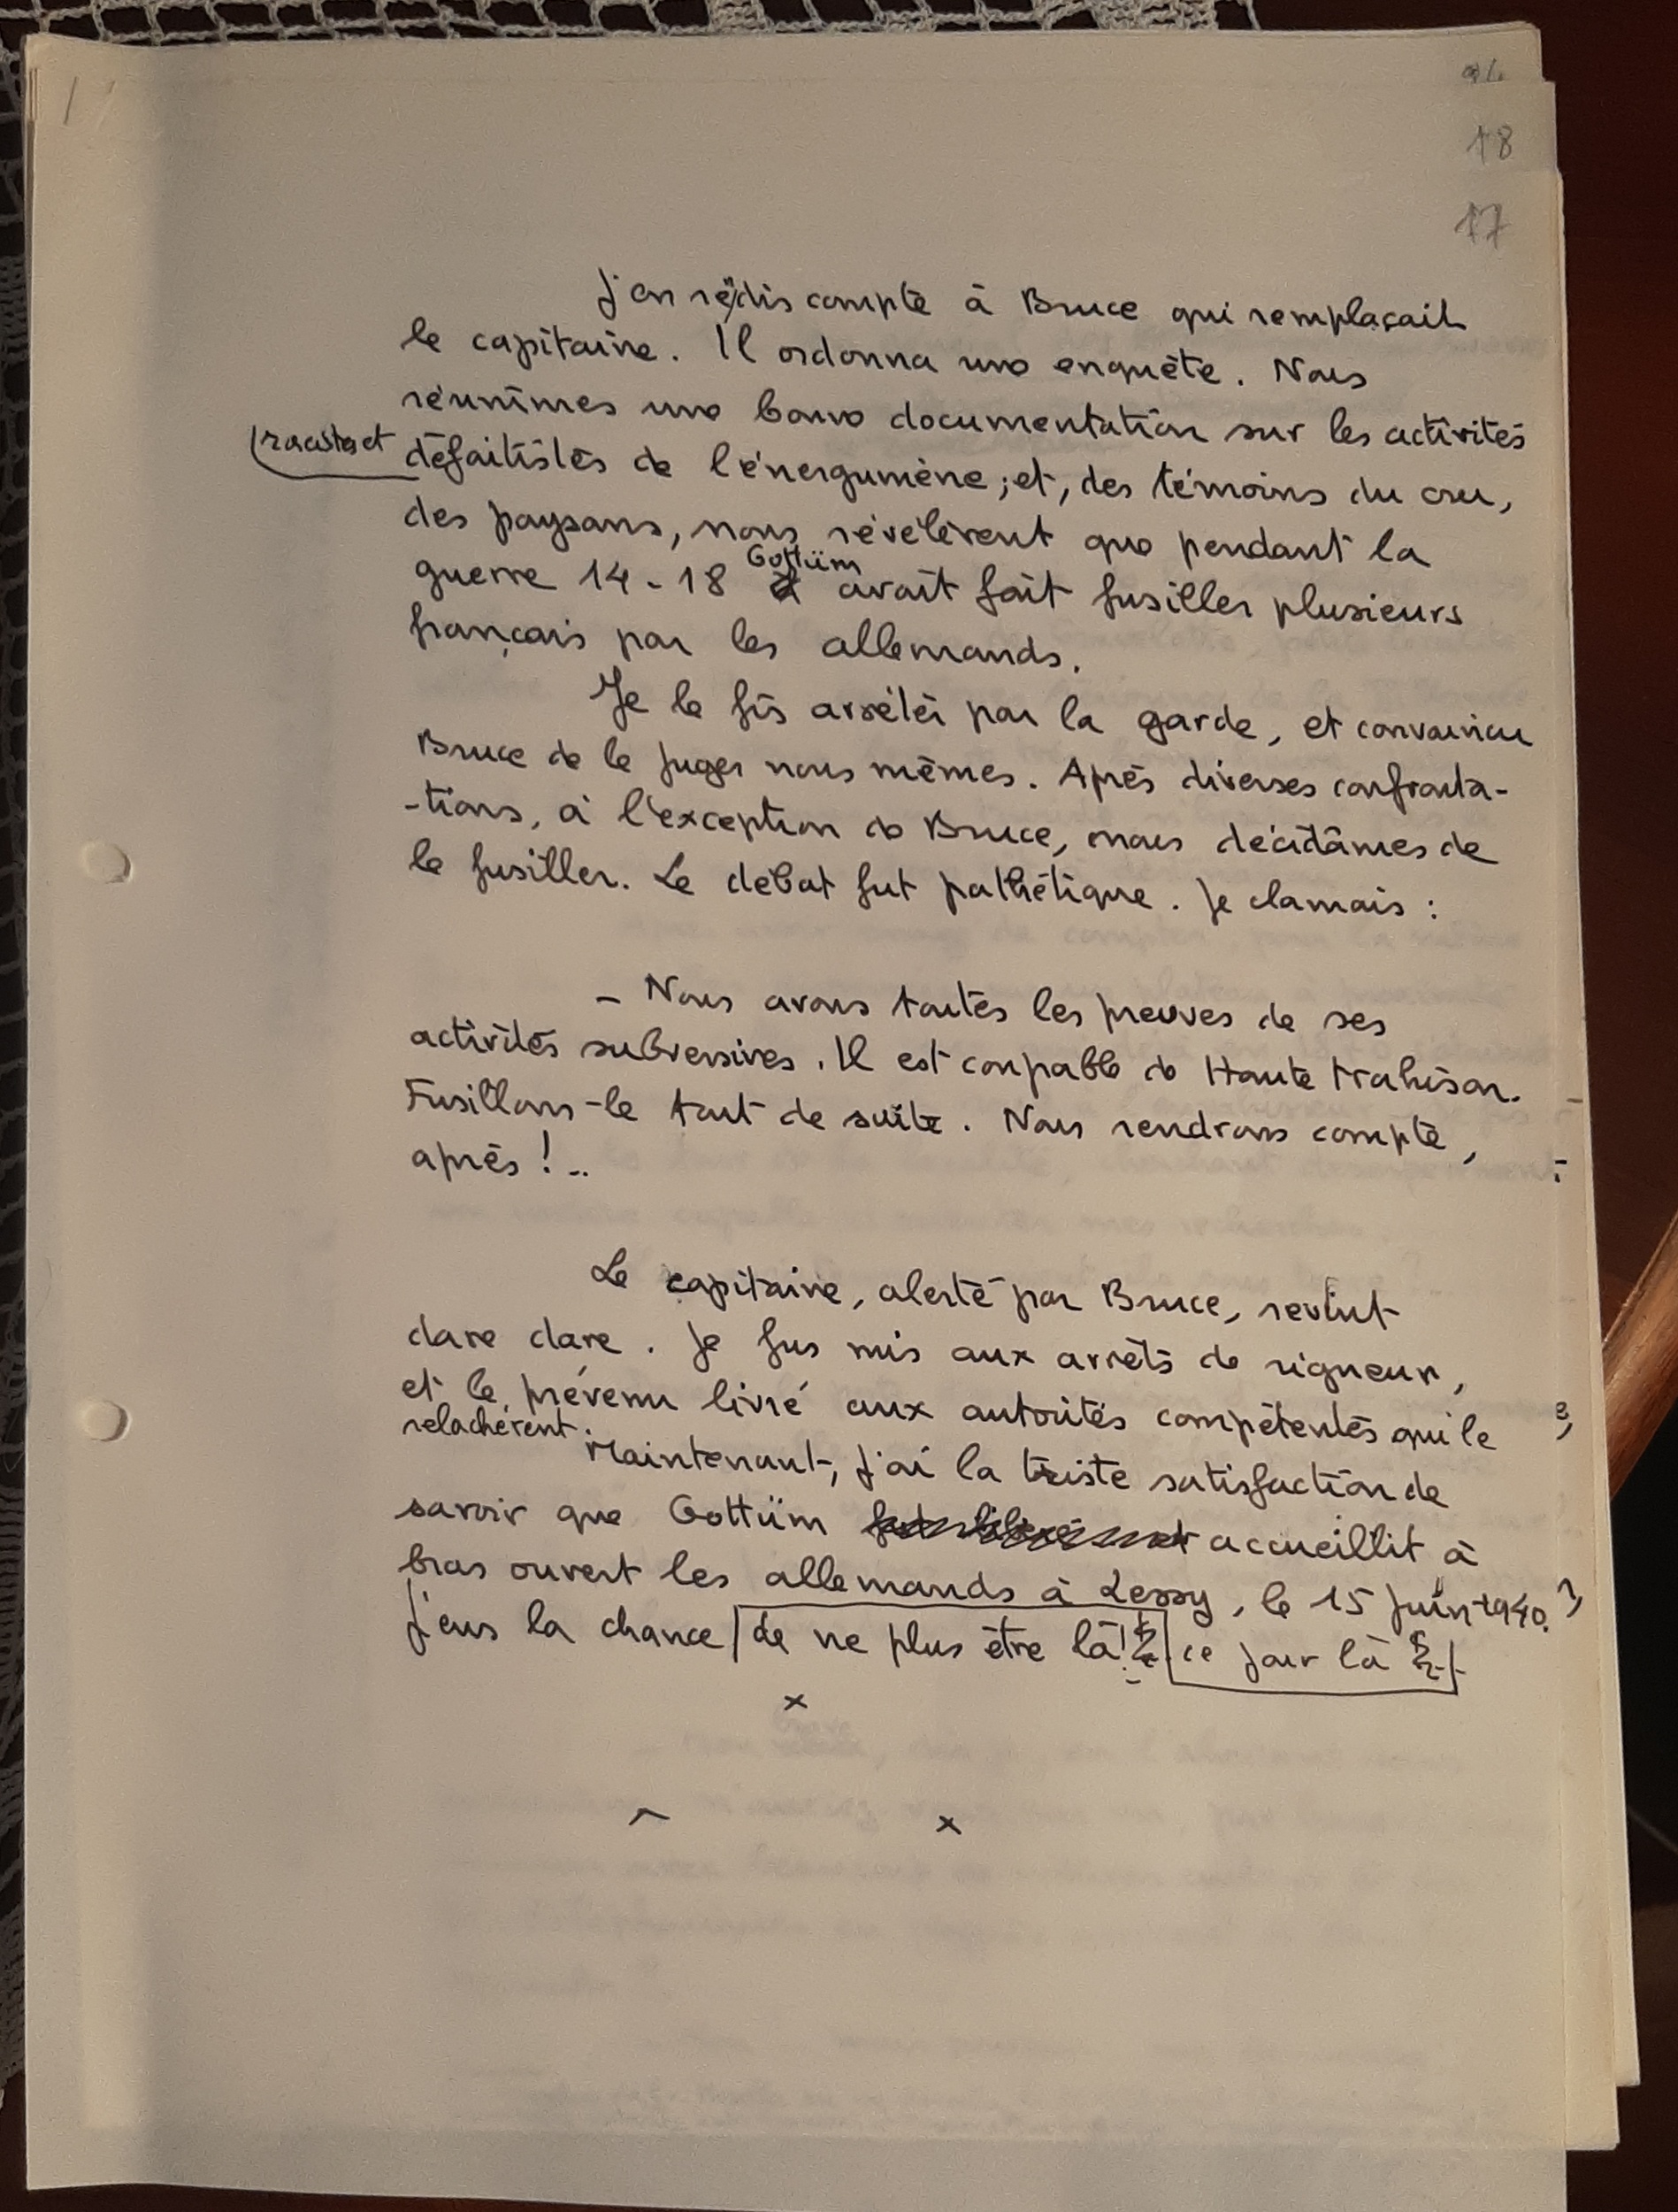 18
17
J'en rendis compte à Bruce qui remplaçait
le capitaine. Il ordonna une enquête. Nous
réunîmes une bonne documentation sur les activités
racistes et défaitistes de l'énergumène ; et, des témoins du cru,
des paysans, nous révélèrent que pendant la
guerre 14-18 Gottüm avait fait fusiller plusieurs
français par les allemands.
Je le fis arrêter par la garde, et convainicu
Bruce de le juger nous mêmes. Après diverses confronta-
-tions, à l'exception de Bruce, nous décidâmes de
le fusiller. Le débat fut pathétique. Je clamais :
- Nous avons toutes les preuves de ses
activités subversives. Il est coupable de Haute trahison.
Fusillons-le tout de suite. Nous rendrons compte,
après !..
Le capitaine, alerté par Bruce, revint
dare dare. Je fus mis aux arrêts de rigueur,
et le prévenu livré aux autorités compétentes qui le
relachèrent. Maintenant, j'ai la triste satisfaction de
savoir que Gottüm accueillit à
bras ouvert les allemands à Lessy, le 15 juin 1940.
J'eus la chance de ne plus être là ! ce jour là
x
x